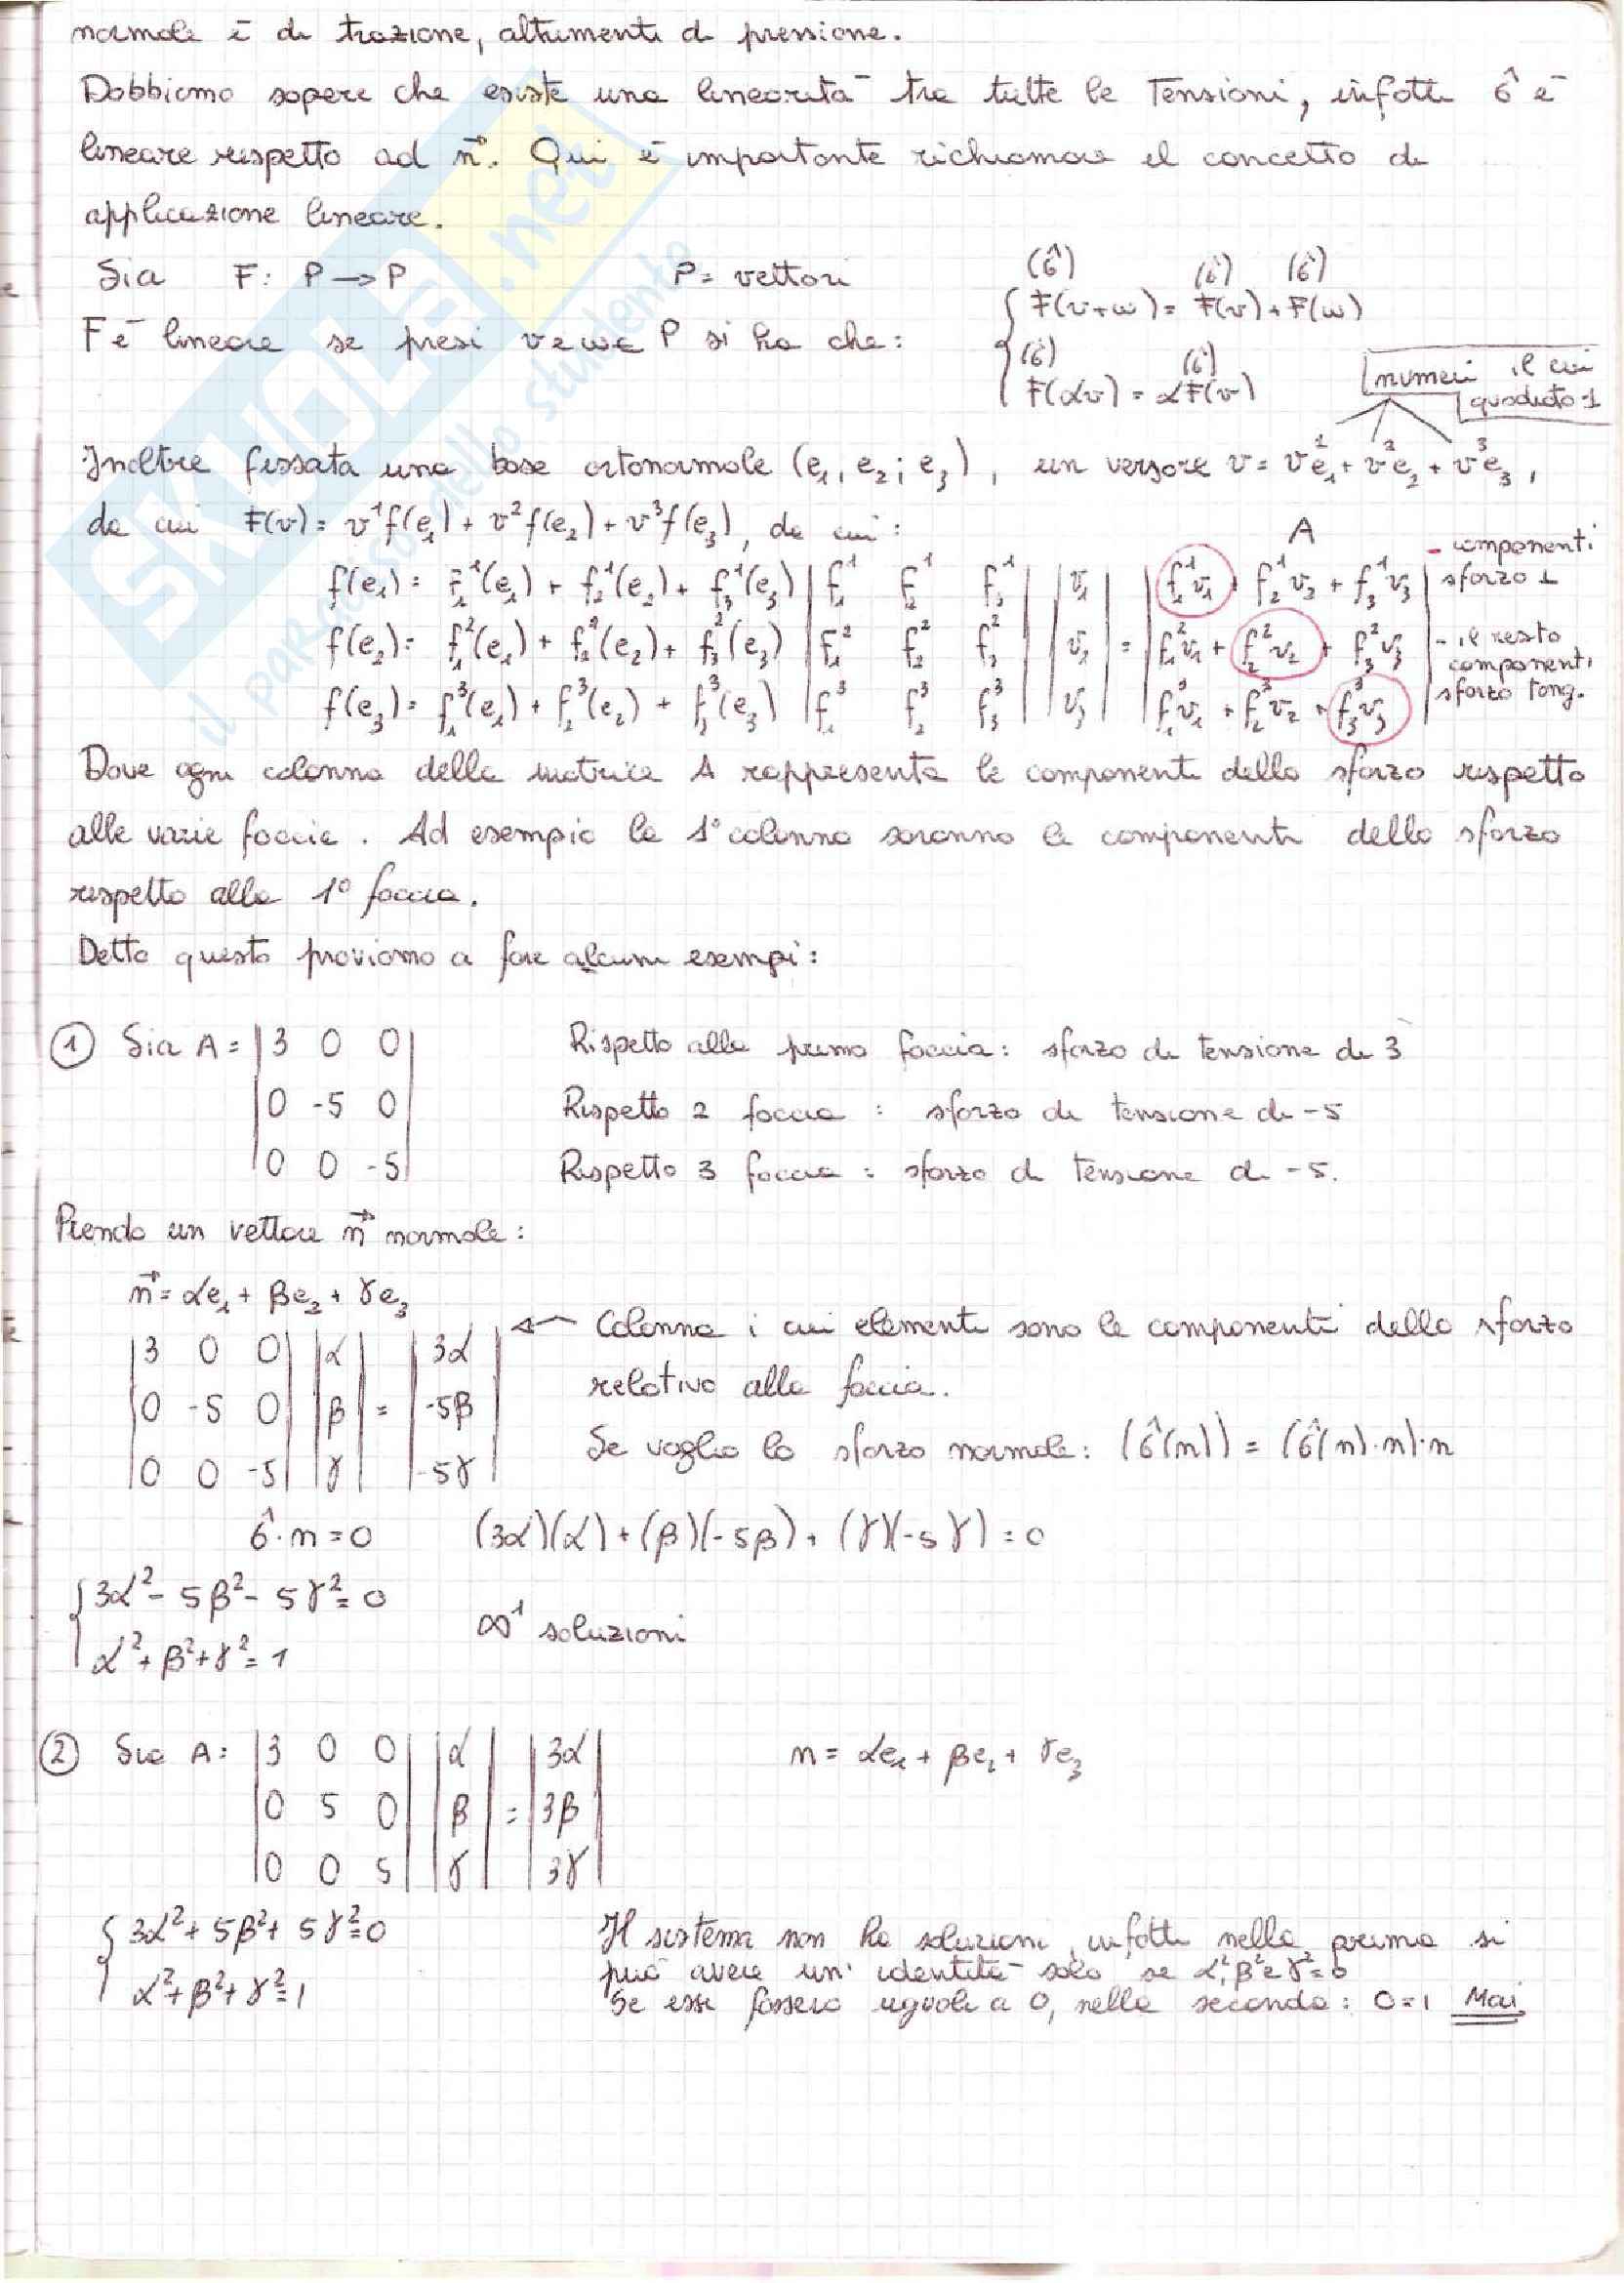 normale è di trazione, altrimenti di pressione.
Dobbiamo sapere che esiste una linearità tra tutte le tensioni, infatti σ̂ è
lineare rispetto ad n⃗. Qui è importante richiamare il concetto di
applicazione lineare.
Sia F: P → P P = vettori
F è lineare se presi v e w ∈ P si ha che:
(σ̂) (σ̂) (σ̂)
F(v+w) = F(v) + F(w)
(σ̂) (σ̂)
F(αv) = αF(v)
numeri il cui
quadrato = 1
Inoltre fissata una base ortonormale (e₁, e₂; e₃), un versore v = v¹e₁ + v²e₂ + v³e₃,
da cui F(v) = v¹f(e₁) + v²f(e₂) + v³f(e₃), da cui:
A
f(e₁) = f₁¹(e₁) + f₂¹(e₂) + f₃¹(e₃) | f₁¹ f₂¹ f₃¹ | | v₁ | | f₁¹v₁ + f₂¹v₂ + f₃¹v₃ |
f(e₂) = f₁²(e₁) + f₂²(e₂) + f₃²(e₃) | f₁² f₂² f₃² | | v₂ | = | f₁²v₁ + f₂²v₂ + f₃²v₃ |
f(e₃) = f₁³(e₁) + f₂³(e₂) + f₃³(e₃) | f₁³ f₂³ f₃³ | | v₃ | | f₁³v₁ + f₂³v₂ + f₃³v₃ |
- componenti
sforzo ⊥
- il resto
componenti
sforzo tang.
Dove ogni colonna della matrice A rappresenta le componenti dello sforzo rispetto
alle varie faccie. Ad esempio la 1° colonna saranno le componenti dello sforzo
rispetto alla 1° faccia.
Detto questo proviamo a fare alcuni esempi:
① Sia A = | 3 0 0 | Rispetto alla prima faccia: sforzo di tensione di 3
| 0 -5 0 | Rispetto 2 faccia: sforzo di tensione di -5
| 0 0 -5 | Rispetto 3 faccia: sforzo di tensione di -5.
Prendo un vettore n⃗ normale:
n⃗ = αe₁ + βe₂ + γe₃
| 3 0 0 | | α | | 3α |
| 0 -5 0 | | β | = | -5β |
| 0 0 -5 | | γ | | -5γ |
← Colonna i cui elementi sono le componenti dello sforzo
relativo alla faccia.
Se voglio lo sforzo normale: (σ̂(n)) = (σ̂(n)·n)·n
σ̂·n = 0 (3α)(α) + (β)(-5β) + (γ)(-5γ) = 0
3α² - 5β² - 5γ² = 0
α² + β² + γ² = 1
∞¹ soluzioni
② Sia A = | 3 0 0 | | α | | 3α | n = αe₁ + βe₂ + γe₃
| 0 5 0 | | β | = | 3β |
| 0 0 5 | | γ | | 3γ |
3α² + 5β² + 5γ² = 0
α² + β² + γ² = 1
Il sistema non ha soluzioni, infatti nella prima si
può avere un' identità solo se α², β² e γ² = 0
Se essi fossero uguali a 0, nella seconda: 0 = 1 Mai
SKUOLA.net
il paradiso dello studente